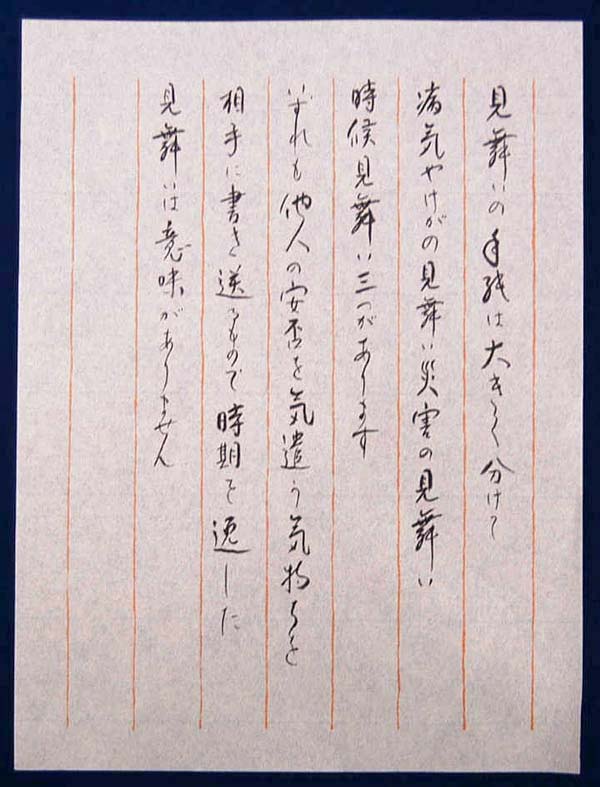 見舞いの手紙は大きく分けて
病気やけがの見舞い災害の見舞い
時候見舞い三つがあります
いずれも他人の安否を気遣う気持ちを
相手に書き送るもので時期を逸した
見舞いは意味がありません